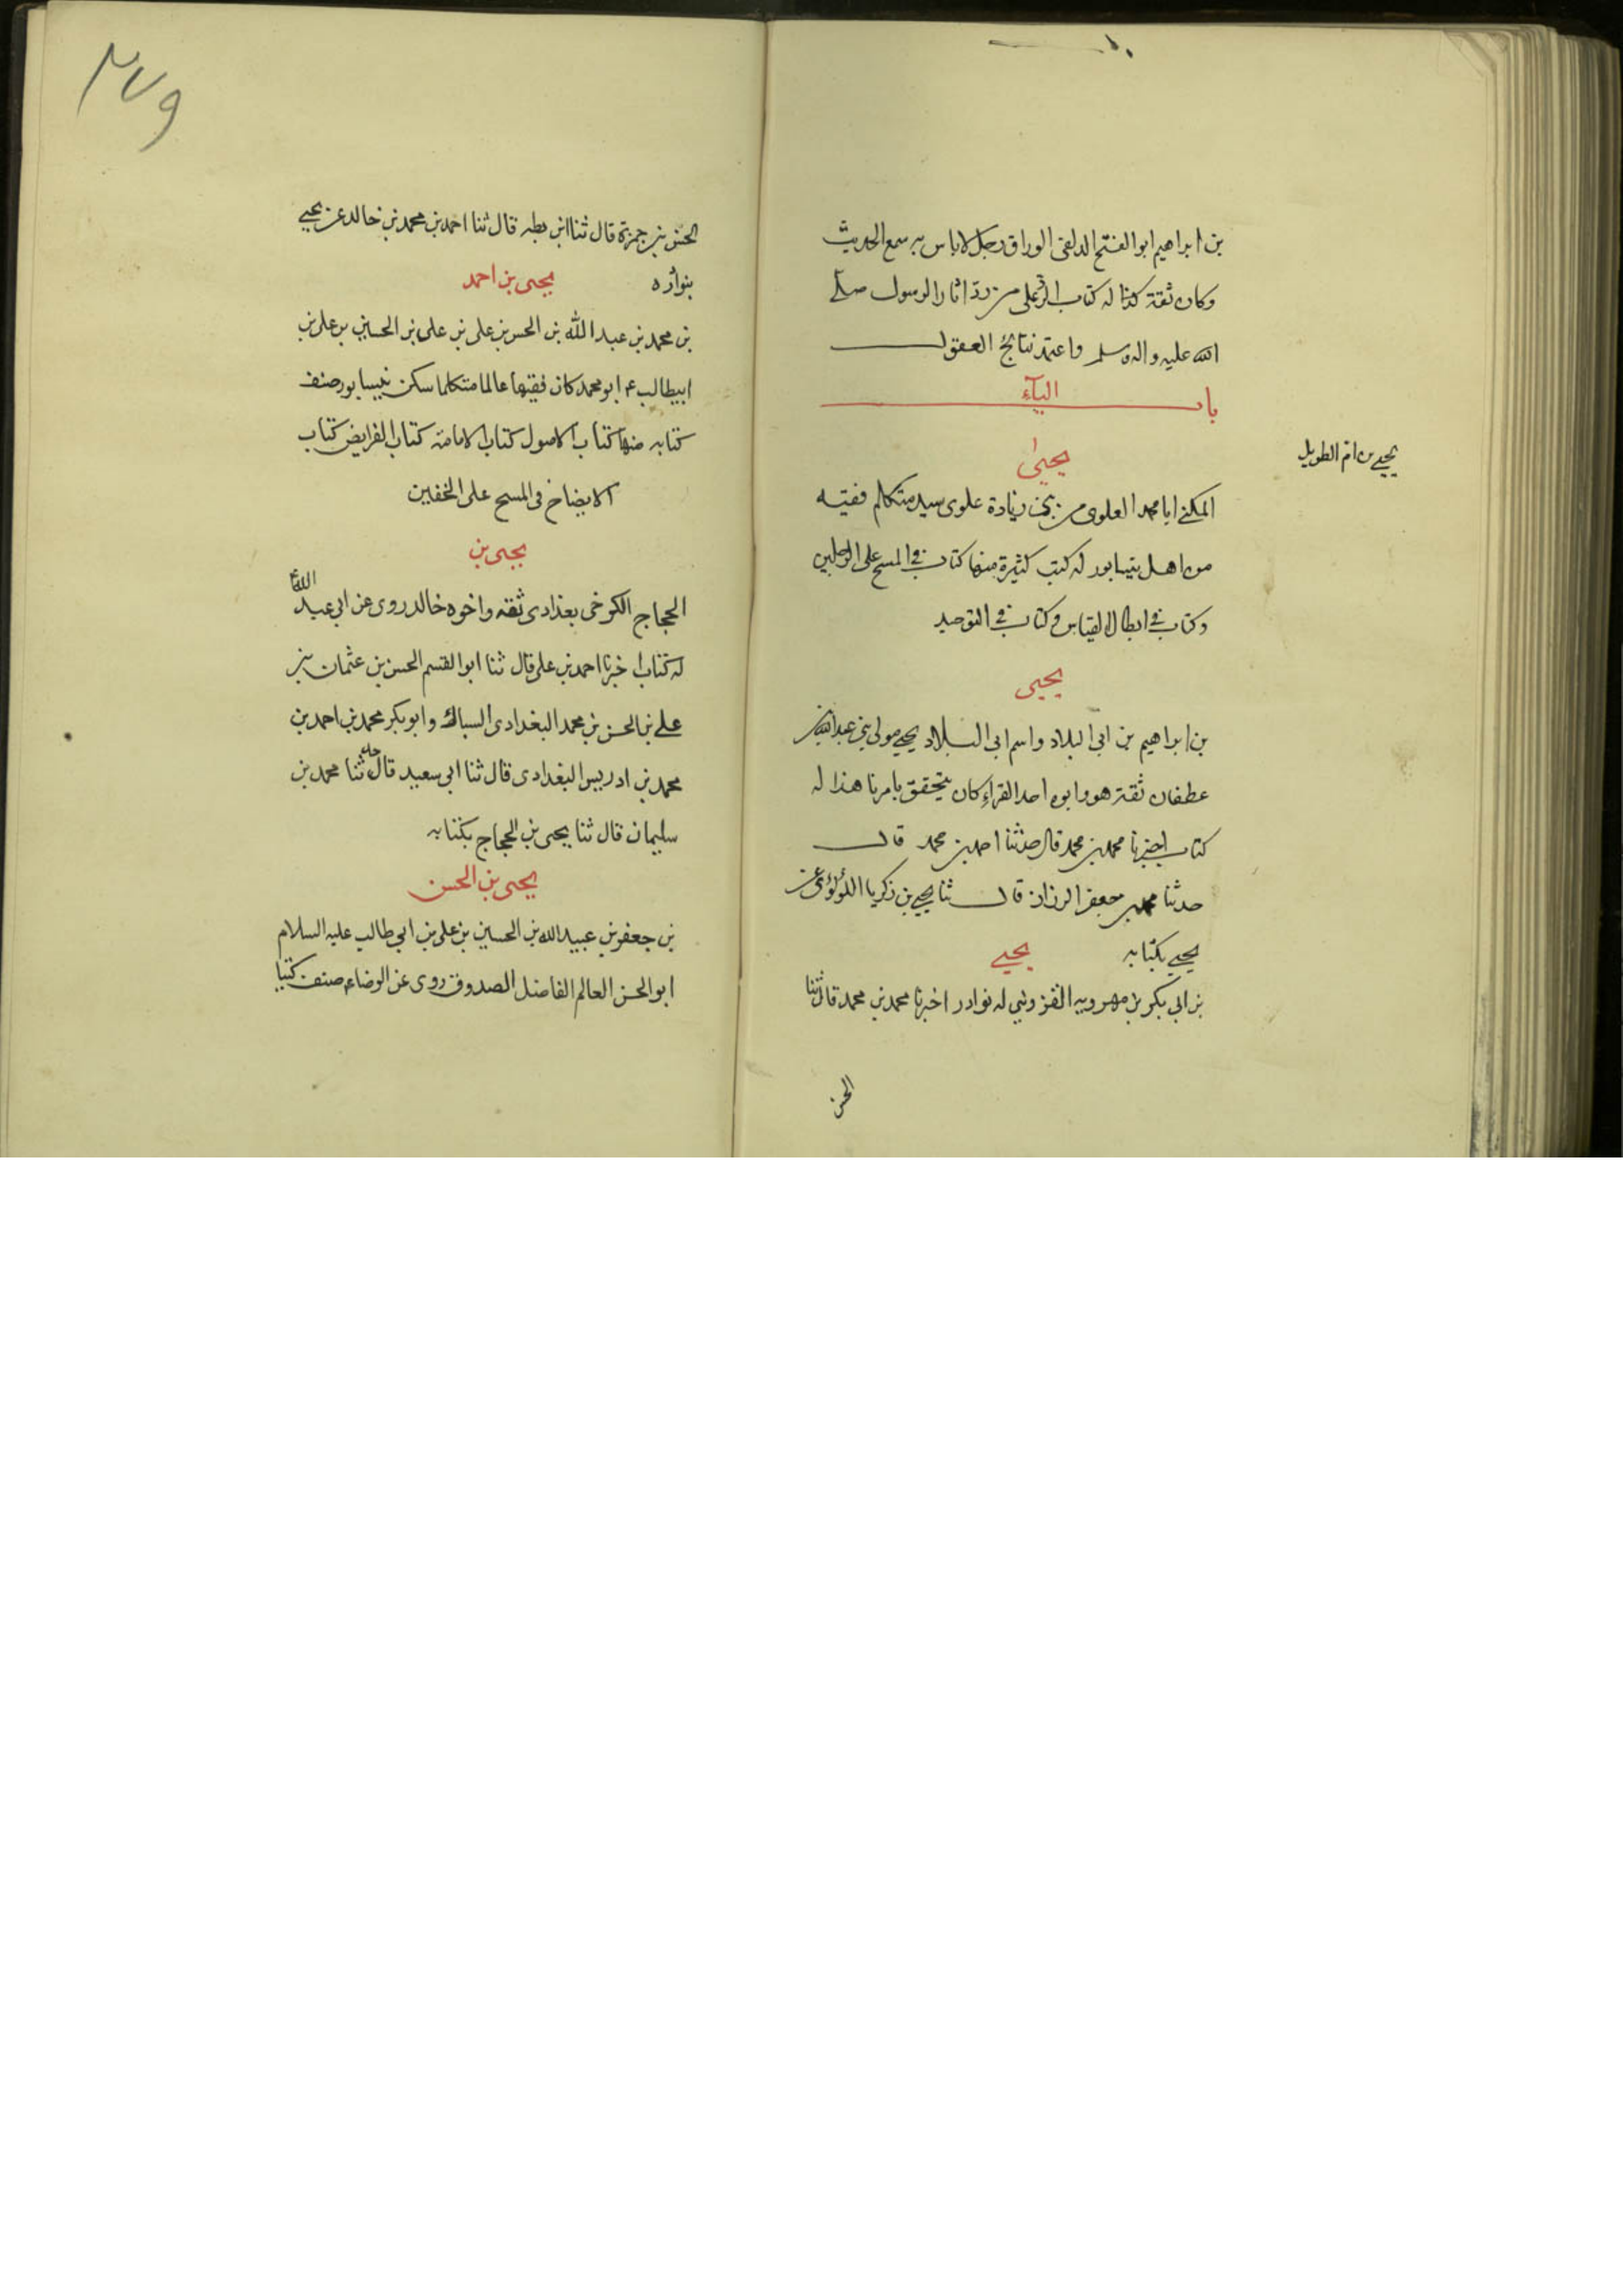 بن ابراهيم ابو الفتح الدلفى الوراق رجل لاباس به سمع الحديث
وكان ثقة كذا له كتاب الرد على من رد اثار الرسول صلى
الله عليه واله وسلم واعتمد نتائج العقول
باب الياء
يحيى
يحيى بن ام الطويل
المكنى ابا محمد العلوى من بنى زيادة علوى سيد متكلم فقيه
من اهل نيسابور له كتب كثيرة منها كتاب فى المسح على الرجلين
وكتاب فى ابطال القياس وكتاب فى التوحيد
يحيى
بن ابراهيم بن ابى البلاد واسم ابى البلاد يحيى مولى بنى عبد الله بن
عطفان ثقة هو وابوه احد القراء كان يتحقق بامرنا هذا له
كتاب اخبرنا محمد بن محمد قال حدثنا احمد بن محمد قال
حدثنا محمد بن جعفر الرزاز قال ثنا يحيى بن زكريا اللؤلؤى عن
يحيى بكتابه يحيى
بن ابى بكر بن مهرويه القزوينى له نوادر اخبرنا محمد بن محمد قال ثنا
الحسن
٢٧٩
الحسن بن حمزة قال ثنا ابن بطه قال ثنا احمد بن محمد بن خالد عن يحيى
بنوادره يحيى بن احمد
بن محمد بن عبد الله بن الحسن بن على بن على بن الحسين بن على بن
ابيطالب ع ابو محمد كان فقيها عالما متكلما سكن نيسابور صنف
كتابه منها كتاب الاصول كتاب الامامة كتاب الفرايض كتاب
الايضاح فى المسح على الخفين
يحيى بن
الحجاج الكرخى بغدادى ثقه واخوه خالد روى عن ابى عبد الله ع
له كتاب اخبرنا احمد بن على قال ثنا ابو القسم الحسن بن عثمان بن
على بن الحسن بن محمد البغدادى السباك وابو بكر محمد بن احمد بن
محمد بن ادريس البغدادى قال ثنا ابى سعيد قال ثنا محمد بن
سليمان قال ثنا يحيى بن الحجاج بكتابه
يحيى بن الحسن
بن جعفر بن عبيد الله بن الحسين بن على بن ابى طالب عليه السلام
ابو الحسن العالم الفاضل الصدوق روى عن الرضا ع صنف كتبا